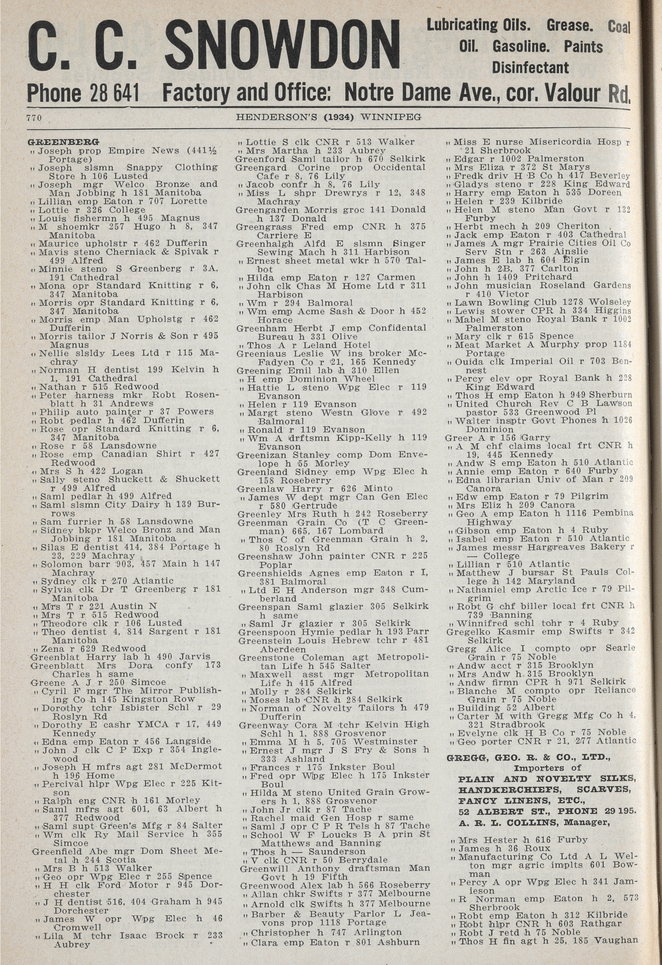 C. C. SNOWDON
Lubricating Oils. Grease. Coal
Oil. Gasoline. Paints
Disinfectant
Phone 28 641 Factory and Office: Notre Dame Ave., cor. Valour Rd.
770 HENDERSON'S (1934) WINNIPEG
GREENBERG
" Joseph prop Empire News (441½
Portage)
" Joseph slsmn Snappy Clothing
Store h 106 Lusted
" Joseph mgr Welco Bronze and
Man Jobbing h 181 Manitoba
" Lillian emp Eaton r 707 Lorette
" Lottie r 326 College
" Louis fishermn h 495 Magnus
" M shoemkr 257 Hugo h 8, 347
Manitoba
" Maurice upholstr r 462 Dufferin
" Mavis steno Cherniack & Spivak r
499 Alfred
" Minnie steno S Greenberg r 3A,
191 Cathedral
" Mona opr Standard Knitting r 6,
347 Manitoba
" Morris opr Standard Knitting r 6,
347 Manitoba
" Morris emp Man Upholstg r 462
Dufferin
" Morris tailor J Norris & Son r 495
Magnus
" Nellie slsldy Lees Ltd r 115 Ma-
chray
" Norman H dentist 199 Kelvin h
1, 191 Cathedral
" Nathan r 515 Redwood
" Peter harness mkr Robt Rosen-
blatt h 31 Andrews
" Philip auto painter r 37 Powers
" Robt pedlar h 462 Dufferin
" Rose opr Standard Knitting r 6,
347 Manitoba
" Rose r 58 Lansdowne
" Rose emp Canadian Shirt r 427
Redwood
" Mrs S h 422 Logan
" Sally steno Shuckett & Shuckett
r 499 Alfred
" Saml pedlar h 499 Alfred
" Saml slsmn City Dairy h 139 Bur-
rows
" Sam furrier h 58 Lansdowne
" Sidney bkpr Welco Bronz and Man
Jobbing r 181 Manitoba
" Silas E dentist 414, 384 Portage h
23, 229 Machray
" Solomon barr 903, 457 Main h 147
Machray
" Sydney clk r 270 Atlantic
" Sylvia clk Dr T Greenberg r 181
Manitoba
" Mrs T r 221 Austin N
" Mrs T r 515 Redwood
" Theodore clk r 106 Lusted
" Theo dentist 4, 814 Sargent r 181
Manitoba
" Zena r 629 Redwood
Greenblat Harry lab h 490 Jarvis
Greenblatt Mrs Dora confy 173
Charles h same
Greene A J r 250 Simcoe
" Cyril F mgr The Mirror Publish-
ing Co h 145 Kingston Row
" Dorothy tchr Isbister Schl r 29
Roslyn Rd
" Dorothy E cashr YMCA r 17, 449
Kennedy
" Edna emp Eaton r 456 Langside
" John J clk C P Exp r 354 Ingle-
wood
" Joseph H mfrs agt 281 McDermot
h 196 Home
" Percival hlpr Wpg Elec r 225 Kit-
son
" Ralph eng CNR h 161 Morley
" Saml mfrs agt 601, 63 Albert h
377 Redwood
" Saml supt Green's Mfg r 84 Salter
" Wm clk Ry Mail Service h 355
Simcoe
Greenfield Abe mgr Dom Sheet Me-
tal h 244 Scotia
" Mrs B h 513 Walker
" Geo opr Wpg Elec r 255 Spence
" H H clk Ford Motor r 945 Dor-
chester
" J H dentist 516, 404 Graham h 945
Dorchester
" James W opr Wpg Elec h 46
Cromwell
" Lila M tchr Isaac Brock r 233
Aubrey
" Lottie S clk CNR r 513 Walker
" Mrs Martha h 233 Aubrey
Greenford Saml tailor h 670 Selkirk
Greengard Corine prop Occidental
Cafe r 8, 76 Lily
" Jacob confr h 8, 76 Lily
" Miss L shpr Drewrys r 12, 348
Machray
Greengarden Morris groc 141 Donald
h 137 Donald
Greengrass Fred emp CNR h 375
Carriere E
Greenhalgh Alfd E slsmn Singer
Sewing Mach h 311 Harbison
" Ernest sheet metal wkr h 570 Tal-
bot
" Hilda emp Eaton r 127 Carmen
" John clk Chas M Home Ltd r 311
Harbison
" Wm r 294 Balmoral
" Wm emp Acme Sash & Door h 452
Horace
Greenham Herbt J emp Confidental
Bureau h 331 Olive
" Thos A r Leland Hotel
Greeniaus Leslie W ins broker Mc-
Fadyen Co r 21, 165 Kennedy
Greening Emil lab h 310 Ellen
" H emp Dominion Wheel
" Hattie L steno Wpg Elec r 119
Evanson
" Helen r 119 Evanson
" Margt steno Westn Glove r 492
Balmoral
" Ronald r 119 Evanson
" Wm A drftsmn Kipp-Kelly h 119
Evanson
Greenizan Stanley comp Dom Enve-
lope h 55 Morley
Greenland Sidney emp Wpg Elec h
158 Roseberry
Greenlaw Harry r 626 Minto
" James W dept mgr Can Gen Elec
r 580 Gertrude
Greenley Mrs Ruth h 242 Roseberry
Greenman Grain Co (T C Green-
man) 665, 167 Lombard
" Thos C of Greenman Grain h 2,
80 Roslyn Rd
Greenshaw John painter CNR r 225
Poplar
Greenshields Agnes emp Eaton r I,
381 Balmoral
" Ltd E H Anderson mgr 348 Cum-
berland
Greenspan Saml glazier 305 Selkirk
h sam
" Saml Jr glazier r 305 Selkirk
Greenspoon Hymie pedlar h 193 Parr
Greenstein Louis Hebrew tchr r 481
Aberdeen
Greenstone Coleman agt Metropoli-
tan Life h 545 Salter
" Maxwell asst mgr Metropolitan
Life h 415 Alfred
" Molly r 284 Selkirk
" Moses lab CNR h 284 Selkirk
" Norman of Novelty Tailors h 479
Dufferin
Greenway Cora M tchr Kelvin High
Schl h 1, 888 Grosvenor
" Emma M h 5, 705 Westminster
" Ernest J mgr J S Fry & Sons h
333 Ashland
" Frances r 175 Inkster Boul
" Fred opr Wpg Elec h 175 Inkster
Boul
" Hilda M steno United Grain Grow-
ers h 1, 888 Grosvenor
" John Jr clk r 87 Tache
" Rachel maid Gen Hosp r same
" Saml J opr C P R Tels h 87 Tache
" School W F Loucks B A prin St
Matthews and Banning
" Thos h — Saunderson
" V clk CNR r 50 Berrydale
Greenwill Anthony draftsman Man
Govt h 19 Fifth
Greenwood Alex lab h 566 Roseberry
" Allan chkr Swifts r 377 Melbourne
" Arnold clk Swifts h 377 Melbourne
" Barber & Beauty Parlor L Jea-
vons prop 1118 Portage
" Christopher h 747 Arlington
" Clara emp Eaton r 801 Ashburn
" Miss E nurse Misericordia Hosp r
21 Sherbrook
" Edgar r 1002 Palmerston
" Mrs Eliza r 372 St Marys
" Fredk driv H B Co h 417 Beverley
" Gladys steno r 228 King Edward
" Harry emp Eaton h 535 Doreen
" Helen r 239 Kilbride
" Helen M steno Man Govt r 132
Furby
" Herbt mech h 209 Cheriton
" Jack emp Eaton r 403 Cathedral
" James A mgr Prairie Cities Oil Co
Serv Stn r 263 Ainslie
" James E lab h 604 Elgin
" John h 2B, 377 Carlton
" John h 1409 Pritchard
" John musician Roseland Gardens
r 410 Victor
" Lawn Bowling Club 1278 Wolseley
" Lewis stower CPR h 334 Higgins
" Mabel M steno Royal Bank r 1002
Palmerston
" Mary clk r 615 Spence
" Meat Market A Murphy prop 1184
Portage
" Ouida clk Imperial Oil r 703 Ben-
nest
" Percy elev opr Royal Bank h 228
King Edward
" Thos H emp Eaton h 949 Sherburn
" United Church Rev C B Lawson
pastor 533 Greenwood Pl
" Walter insptr Govt Phones h 1026
Dominion
Greer A r 156 Garry
" A M chf claims local frt CNR h
19, 445 Kennedy
" Andw S emp Eaton h 510 Atlantic
" Annie emp Eaton r 640 Furby
" Edna librarian Univ of Man r 209
Canora
" Edw emp Eaton r 79 Pilgrim
" Mrs Eliz h 209 Canora
" Geo A emp Eaton h 1116 Pembina
Highway
" Gibson emp Eaton h 4 Ruby
" Isabel emp Eaton r 510 Atlantic
" James messr Hargreaves Bakery r
— College
" Lillian r 510 Atlantic
" Matthew J bursar St Pauls Col-
lege h 142 Maryland
" Nathaniel emp Arctic Ice r 79 Pil-
grim
" Robt G chf biller local frt CNR h
739 Banning
" Winnifred schl tchr r 4 Ruby
Gregelko Kasmir emp Swifts r 342
Selkirk
Gregg Alice I compto opr Searle
Grain r 75 Noble
" Andw acct r 315 Brooklyn
" Mrs Andw h 315 Brooklyn
" Andw firmn CPR h 971 Selkirk
" Blanche M compto opr Reliance
Grain r 75 Noble
" Building 52 Albert
" Carter M with Gregg Mfg Co h 4,
321 Stradbrook
" Evelyne clk H B Co r 75 Noble
" Geo porter CNR r 21, 277 Atlantic
GREGG, GEO. R. & CO., LTD.,
Importers of
PLAIN AND NOVELTY SILKS,
HANDKERCHIEFS, SCARVES,
FANCY LINENS, ETC.,
52 ALBERT ST., PHONE 29 195.
A. R. L. COLLINS, Manager,
" Mrs Hester h 616 Furby
" James h 36 Roux
" Manufacturing Co Ltd A L Wel-
ton mgr agric implts 601 Bow-
man
" Percy A opr Wpg Elec h 341 Jam-
leson
" R Norman emp Eaton h 2, 573
Sherbrook
" Robt emp Eaton h 312 Kilbride
" Robt hlpr CNR h 603 Rathgar
" Robt J retd h 75 Noble
" Thos H fin agt h 25, 185 Vaughan